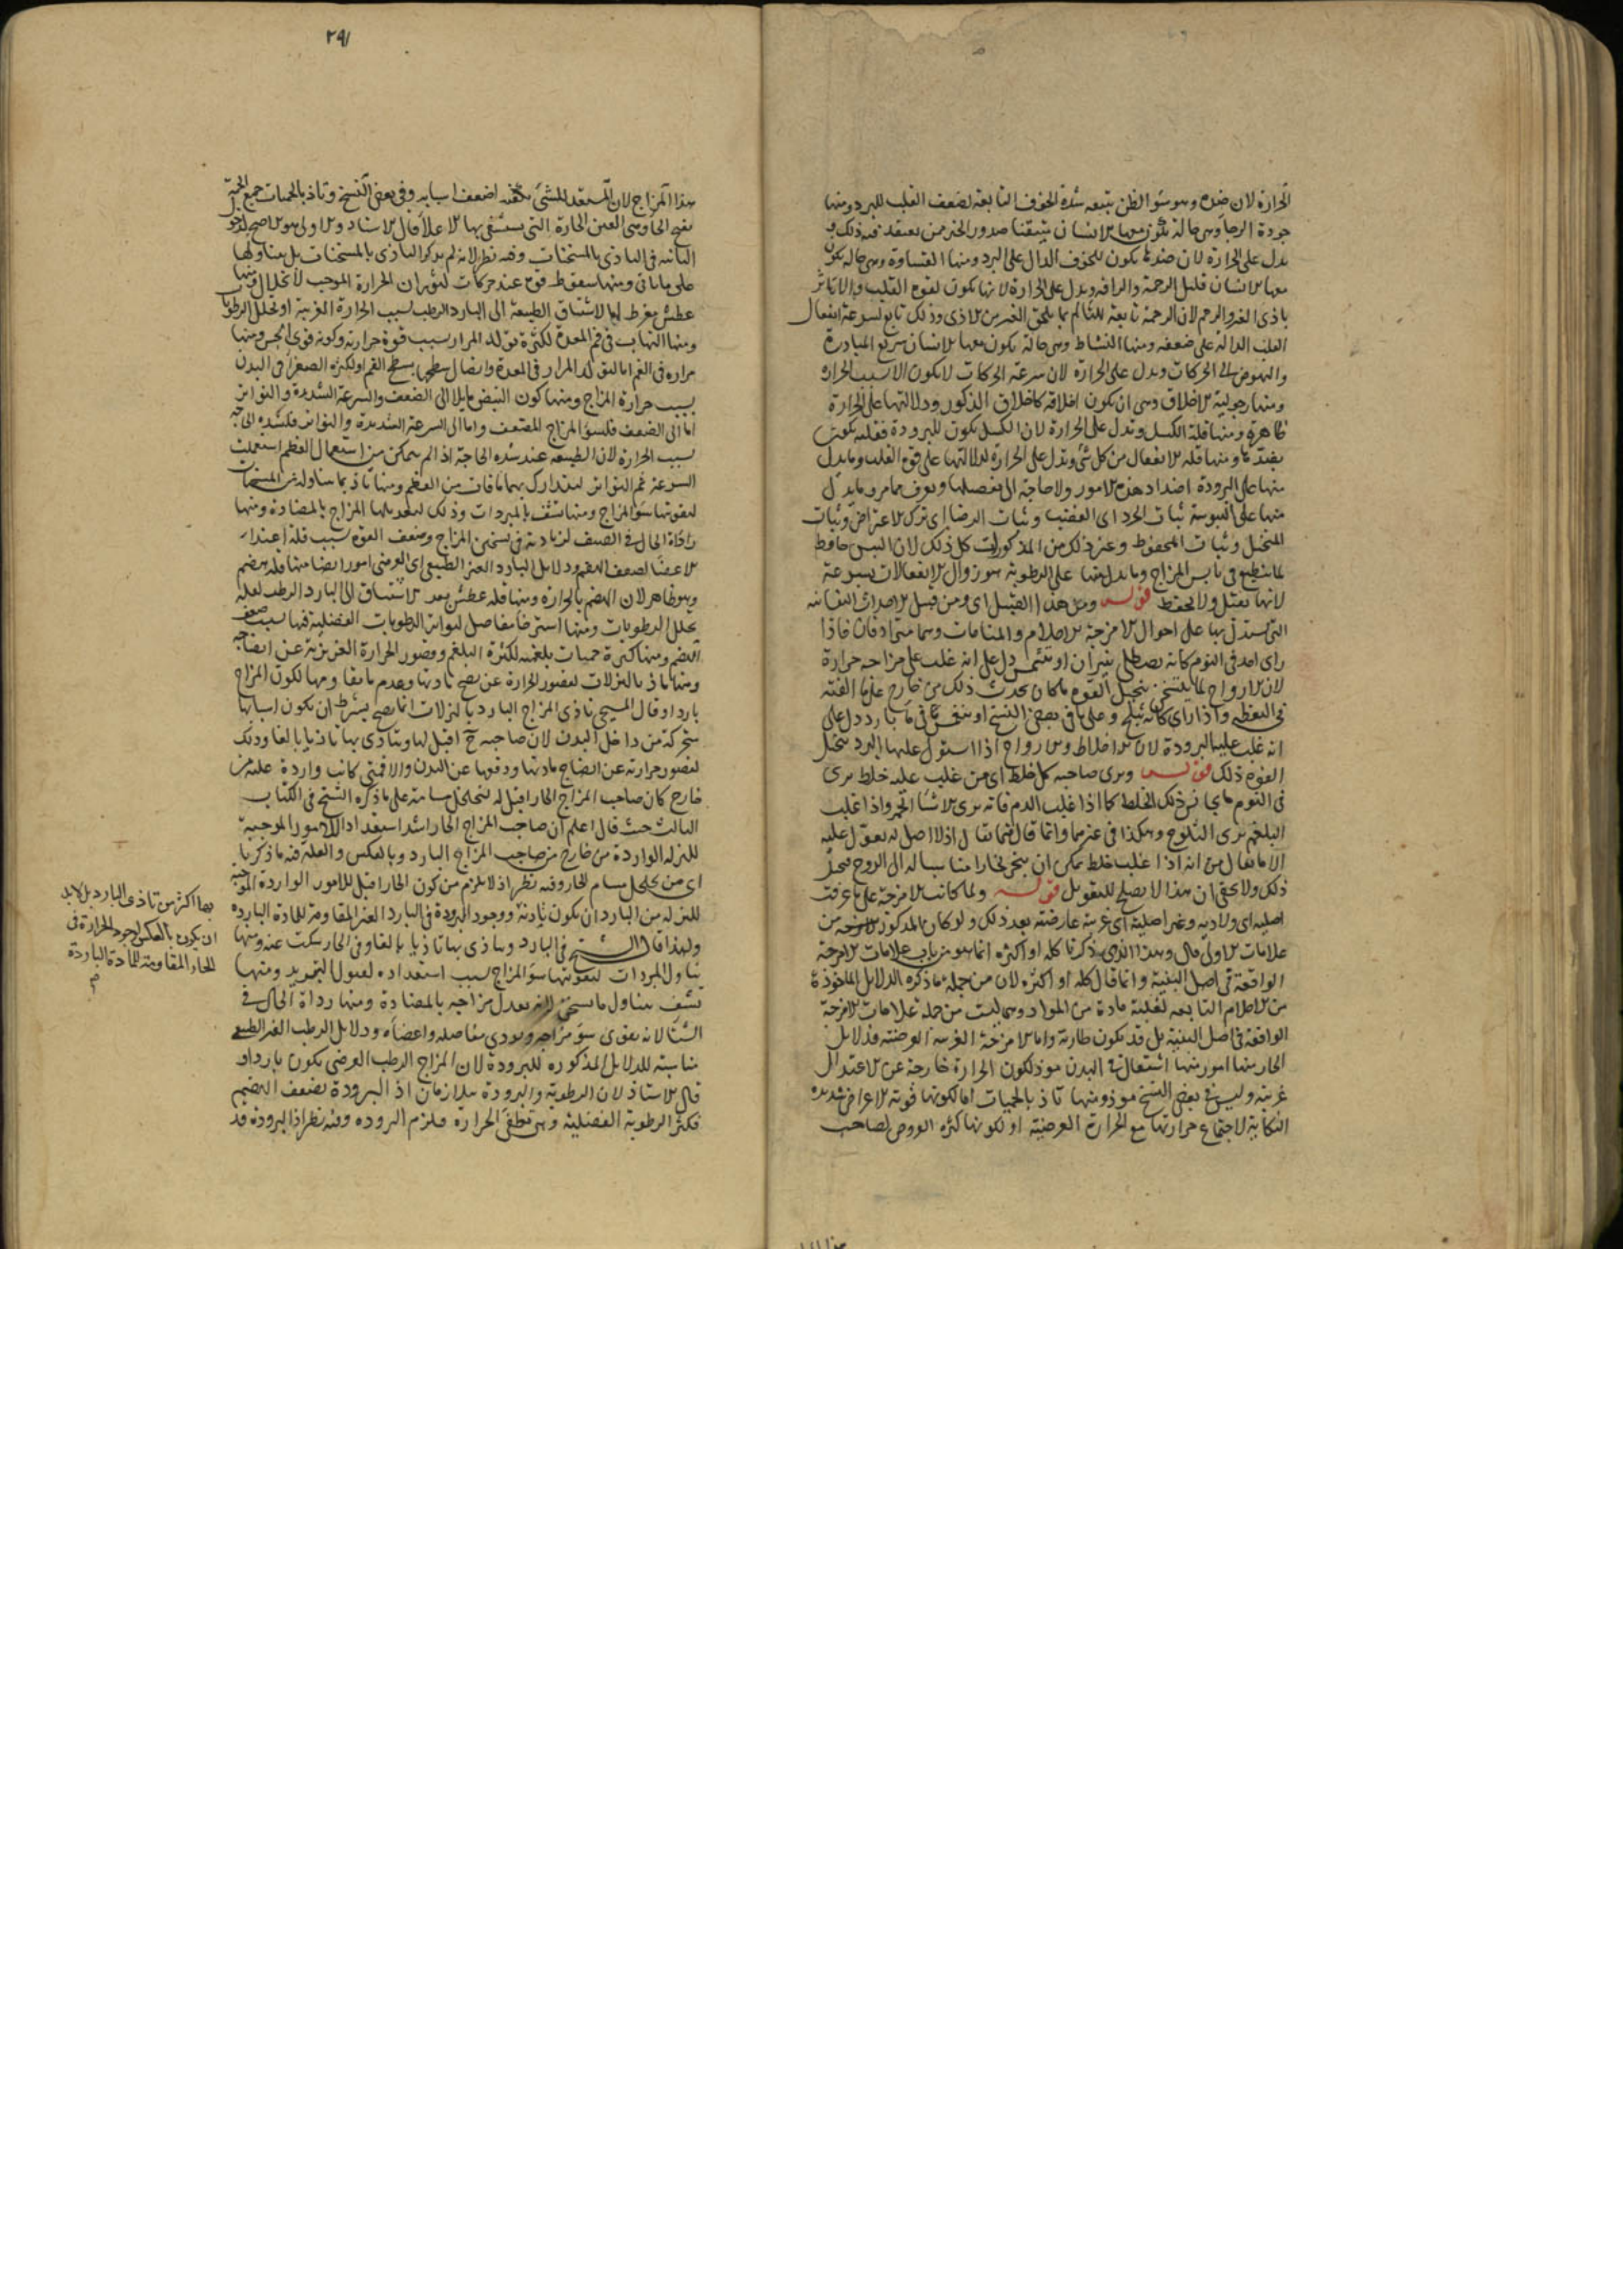 الحرارة لان ضده وهو سوء الظن يتبعه شدة الخوف التابعة لضعف القلب للبرد ومنها
جودة الرجا وهي حالة يكون معها الانسان متيقنا صدور الخير ممن يعتقد فيه ذلك و
يدل على الحرارة لان ضدها يكون للخوف الدال على البرد ومنها القساوة وهي حالة يكون
معها الانسان قليل الرحمة والرافة ويدل على الحرارة لانها تكون لقوة القلب
باذى الغير والرحم لان الرحمة تابعة للتالم بما يلحق الغير من الاذى وذلك تابع لسرعة انفعال
القلب الدالة على ضعفه ومنها النشاط وهي حالة يكون معها الانسان سريع المبادرة
والنهوض الى الحركات ويدل على الحرارة لان سرعة الحركات لا يكون الا بسبب الحرارة
ومنها رجولية الاخلاق وهي ان يكون اخلاقه كاخلاق الذكور ودلالتها على الحرارة
ظاهرة ومنها قلة الكسل وتدل على الحرارة لان الكسل يكون للبرودة فقلته تكون
بضدها ومنها قلة الانفعال من كل شئ وتدل على الحرارة لدلالتها على قوة القلب وما يدل
منها على البرودة اضداد هذه الامور ولا حاجة الى تفصيلها ويعرف مما مر وما يدل
منها على اليبوسة ثبات الحرد اى الغضب وثبات الرضا اى ترك الاعتراض وثبات
المتخيل وثبات المحفوظ وغير ذلك من المذكورات كل ذلك لان اليبس حافظ
لما ينطبع في يابس المزاج وما يدل منها على الرطوبة هو زوال الانفعالات بسرعة
لانها تقبل ولا تحفظ قوله ومن هذا القبيل اى ومن قبيل الاحداث النفسانية
التي يستدل بها على احوال الامزجة الاحلام والمنامات وهما مترادفان فاذا
راى احد في النوم كانه يصطلى بنيران او يتشمس دل على انه غلب على مزاجه حرارة
لان الارواح لما يتسخن يتخيل القوة ما كان يحدث ذلك من خارج على ما الفته
في اليقظة واذا راى كانه يثلج وعلى ما في بعض النسخ او ينغمس في ماء بارد دل على
انه غلب عليه البرودة لان الاخلاط والارواح اذا استولى عليها البرد يتخيل
القوة ذلك قوله ويرى صاحب كل خلط اى من غلب عليه خلط يرى
في النوم ما يجانس ذلك الخلط كما اذا غلب الدم فانه يرى الاشياء الحمر واذا غلب
البلغم يرى الثلوج وهكذا في غيرهما وانما قال فيما يقال اذ لا اصل له يعول عليه
الا ما يقال من انه اذا غلب خلط يمكن ان يتبخر بخارا مناسبا له الى الروح فيتخيل
ذلك ولا يخفى ان هذا لا يصلح للتعويل قوله ولما كانت الامزجة على ما عرفت
اصلية اى ولادية وغير اصلية اى غريبة عارضة بعد ذلك ولو كان المذكور من
علامات الاولى قال وهذا الذي ذكرنا كله او اكثره انما هو من باب علامات الامزجة
الواقعة في اصل البنية وانما قال كله او اكثره لان من جملة ما ذكره الدلايل الماخوذة
من الاحلام التابعة لغلبة مادة من المواد وهي ليست من جملة علامات الامزجة
الواقعة في اصل البنية بل قد تكون طارئة واما الامزجة الغريبة العرضية فدلايل
الحار منها امور منها اشتعال في البدن موذ لكون الحرارة خارجة عن الاعتدال
غريبة وليس في بعض النسخ موذ ومنها تاذ بالحميات اما لكونها قوية الاعراض شديدة
النكاية لاجتماع حرارتها مع الحرارة العرضية او لكونها كثيرة العروض لصاحب
٢٩١
هذا المزاج لان المستعد للشئ يكفيه اضعف اسبابه وفي بعض النسخ وتاذ بالحمات جمع الحمة
بفتح الحاء وهي العين الحارة التي يستشفى بها الاعلاء قال الاستاد والاولى هو الاصح
الثانية في التاذى بالمسخنات وفيه نظر لانه لم يذكر التاذى بالمسخنات بل بتناولها
على ما ياتى ومنها سقوط قوة عند حركات لثوران الحرارة الموجب لانحلال ومنها
عطش مفرط اما لاشتياق الطبيعة الى البارد الرطب لسبب الحرارة الغريبة او تحلل الرطوبات
ومنها التهاب في فم المعدة لكثرة تولد المرار بسبب قوة حرارته وكونه قوى الحس ومنها
مرارة في الفم اما لتولد المرار في المعدة واتصال سطحها بسطح الفم او لكثرة الصفراء في البدن
بسبب حرارة المزاج ومنها كون النبض مايلا الى الضعف والسرعة الشديدة والتواتر
اما الى الضعف فلسوء المزاج المضعف واما الى السرعة الشديدة والتواتر فلشدة الحاجة
بسبب الحرارة لان الطبيعة عند شدة الحاجة اذا لم يتمكن من استعمال العظم استعملت
السرعة ثم التواتر ليتدارك بهما ما فات من العظم ومنها تاذ بما يتناوله من المسخنات
لتقويتها سوء المزاج ومنها تشف بالمبردات وذلك لتعديلها المزاج بالمضادة ومنها
رداءة الحال في الصيف لزيادته في تسخين المزاج وضعف القوة بسبب قلة اعتداد
الاعضاء لضعف الهضم ودلايل البارد الغير الطبيعى اى العرضى امور ايضا منها قلة هضم
وهو ظاهر لان الهضم بالحرارة ومنها قلة عطش لعدم الاشتياق الى البارد الرطب لقلة
تحلل الرطوبات ومنها استرخاء مفاصل لتواتر الرطوبات الفضلية فيها بسبب ضعف
الهضم ومنها كثرة حميات بلغمية لكثرة البلغم وقصور الحرارة الغريزية عن انضاجه
ومنها تاذ بالنزلات لقصور الحرارة عن نضج مادتها وعدم ما يقاومها لكون المزاج
باردا وقال المسيحى تاذى المزاج البارد بالنزلات انما يصح بشرط ان يكون اسبابها
متحركة من داخل البدن لان صاحبه ح اقبل لها ويتاذى بها تاذيا بالغا وذلك
لقصور حرارته عن انضاج مادتها ودفعها عن البدن والا فمتى كانت واردة عليه من
خارج كان صاحب المزاج الحار اقبل له لتخلخل مسامه على ما ذكره الشيخ في الكتاب
الثالث حيث قال اعلم ان صاحب المزاج الحار اشد استعدادا للامور الموجبة
للنزلة الواردة من خارج من صاحب المزاج البارد وبالعكس والعلة فيه ما ذكرنا
اى من تخلخل مسام الحار وفيه نظر اذ لا يلزم من كون الحار اقبل للامور الواردة الموجبة
للنزلة من البارد ان يكون تاذيه ووجود البرودة في البارد الغير المقاومة للمادة الباردة
ولهذا قال الشيخ في البارد ويتاذى بها تاذيا بالغا وفي الحار سكت عنه ومنها
تناول المبردات لتقويتها سوء المزاج بسبب استعداده لقبول التبريد ومنها
تشف بتناول ما يسخن لانه يعدل مزاجه بالمضادة ومنها رداءة الحال في
الشتا لانه يقوى سوء مزاجه ويوذى مفاصله واعضاه ودلايل الرطب الغير الطبيعى
مناسبة للدلايل المذكورة للبرودة لان المزاج الرطب العرضى يكون باردا و
قال الاستاذ لان الرطوبة والبرودة متلازمان اذ البرودة تضعف الهضم
فكثر الرطوبة الفضلية وهي تطفئ الحرارة فيلزم البرودة وفيه نظر اذ البرودة قد
بها اكثر من تاذى البارد بل لابد
ان يكون بالعكس لوجود الحرارة في
الحار المقاومة للمادة الباردة
م